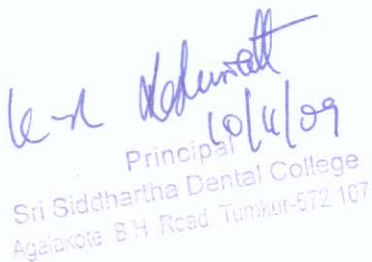 10/11/09
Principal
Sri Siddhartha Dental College
Agalakote, B.H. Road, Tumkur-572 107